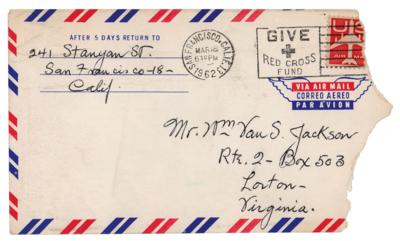 AFTER 5 DAYS RETURN TO
241 Stanyan St.
San Francisco-18-
Calif.
SAN FRANCISCO, CALIF.
MAR 18
6 PM
1962
GIVE
RED CROSS
FUND
VIA AIR MAIL
CORREO AEREO
PAR AVION
Mr. Wm Van S. Jackson
Rte. 2 - Box 503
Lorton -
Virginia.